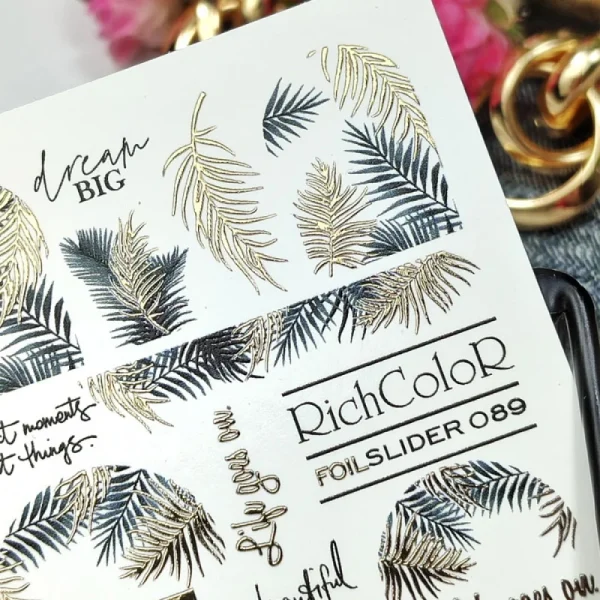 dream
BIG
RichColoR
FOILSLIDER 089
t moments
t things.
life goes on.
beautiful
goes on.